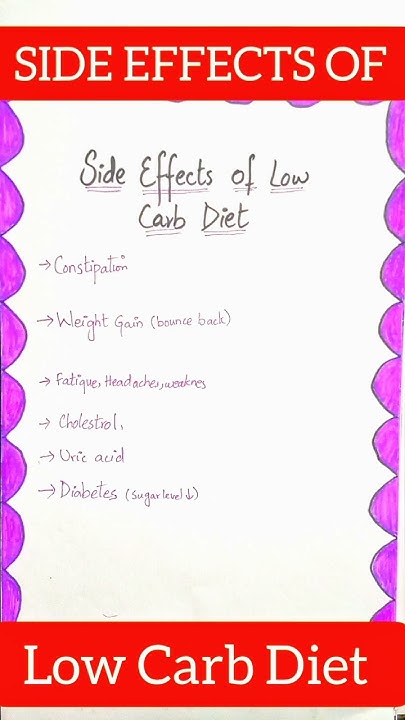 SIDE EFFECTS OF
Side Effects of Low
Carb Diet
→ Constipation
→ Weight Gain (bounce back)
→ Fatigue, Headaches, weaknes
→ Cholestrol,
→ Uric acid
→ Diabetes (Sugar level ↓)
Low Carb Diet